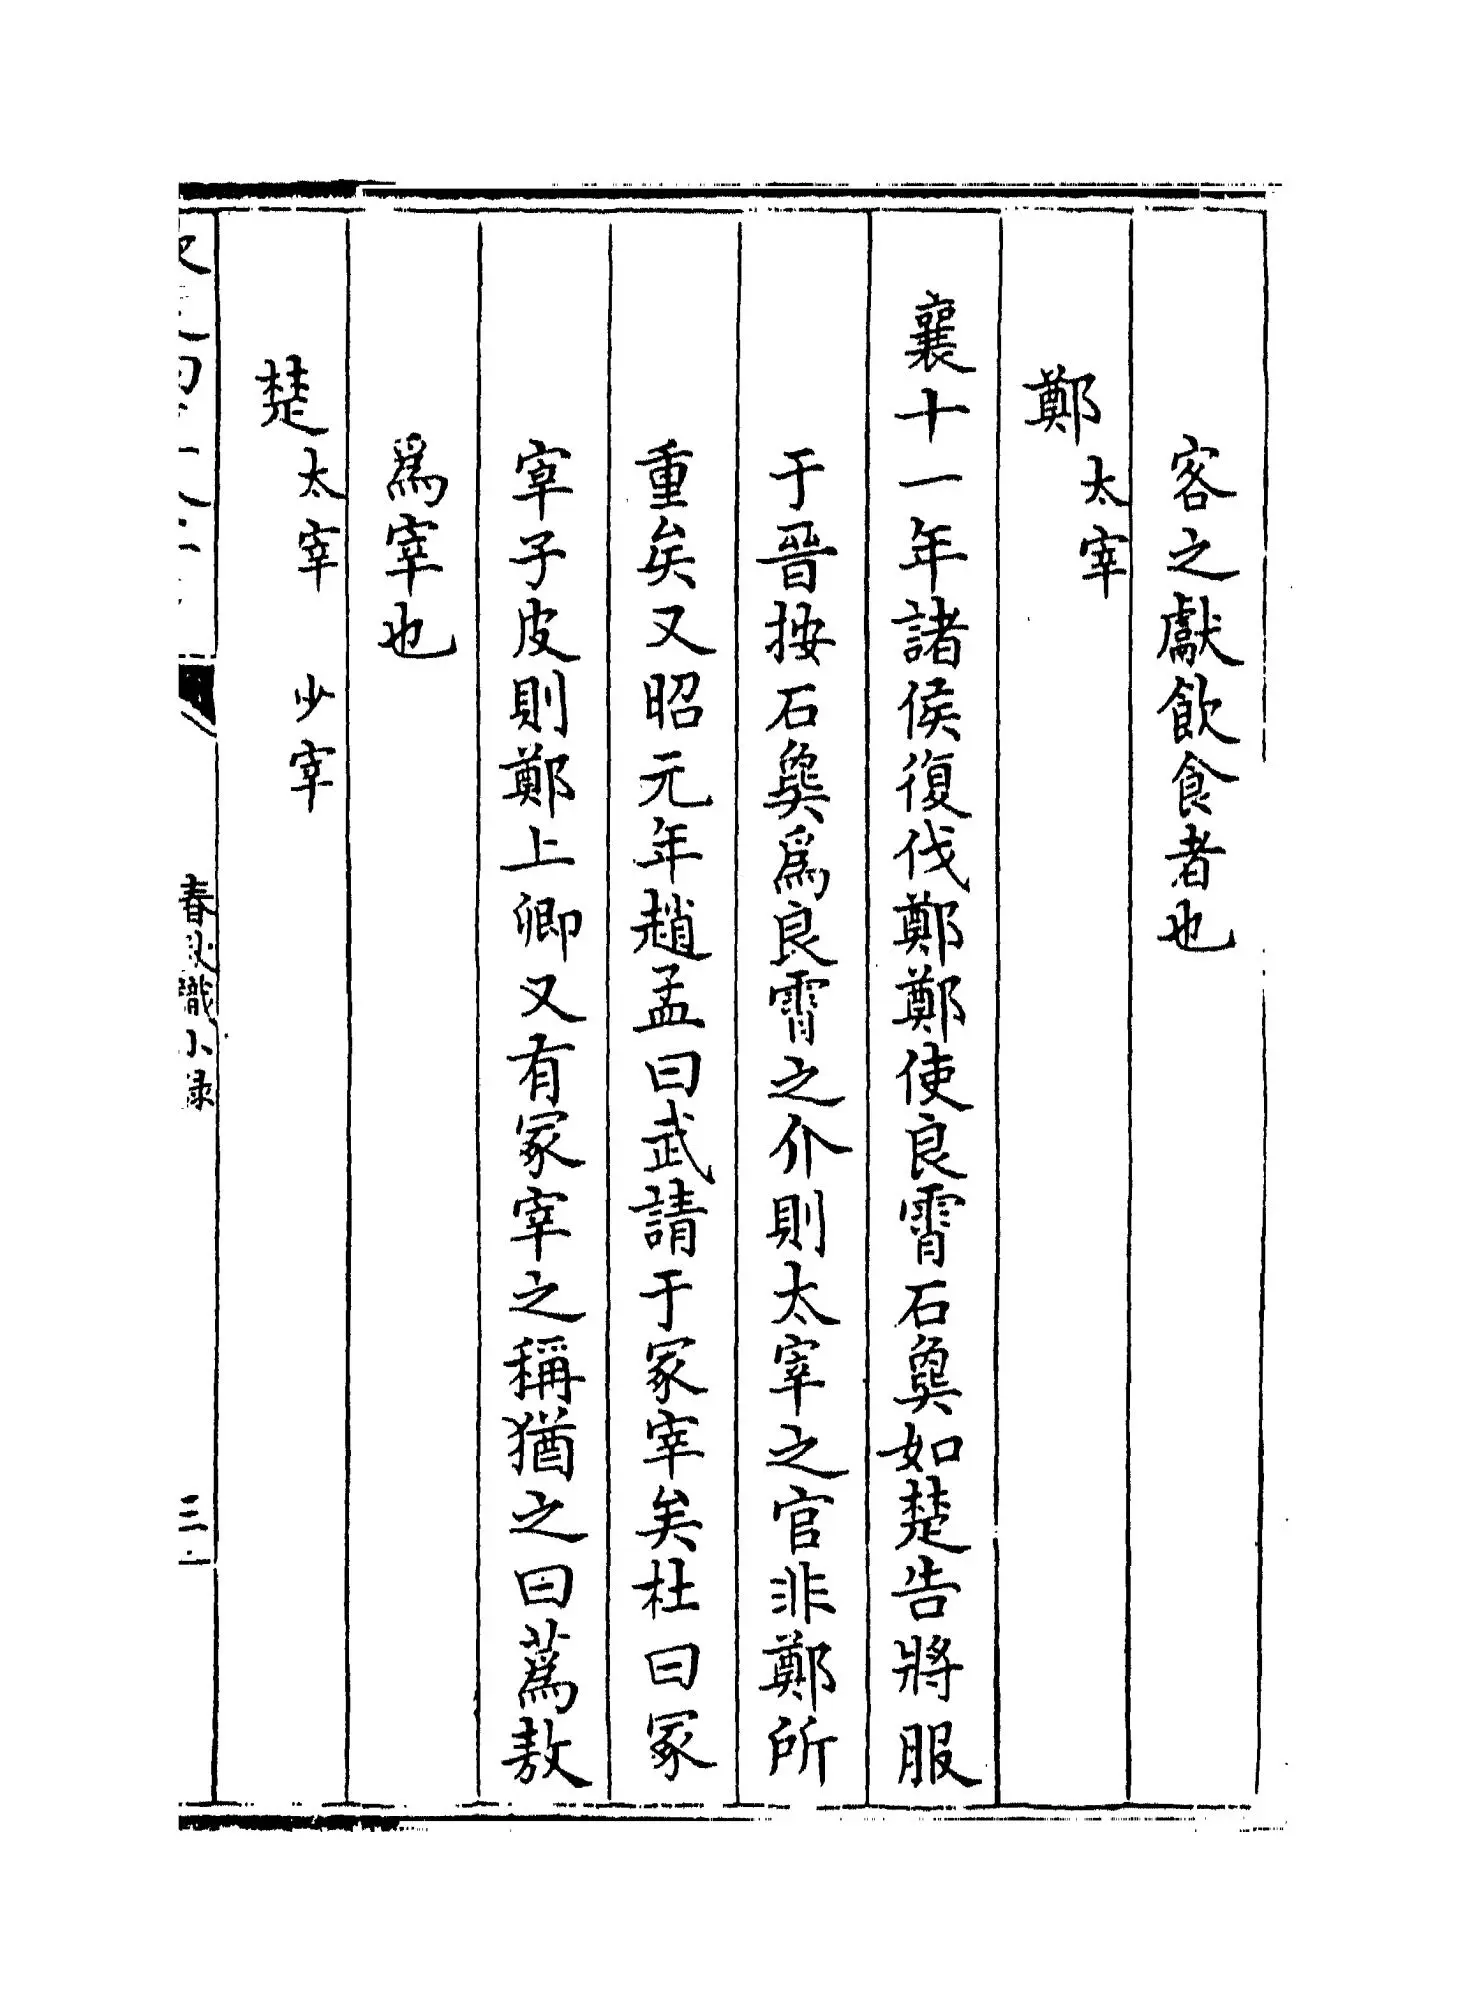 客之獻飲食者也
鄭太宰
襄十一年諸侯復伐鄭鄭使良霄石㚟如楚告將服
于晉按石㚟爲良霄之介則太宰之官非鄭所
重矣又昭元年趙孟曰武請于冢宰矣杜曰冢
宰子皮則鄭上卿又有冢宰之稱猶之曰蒍敖
爲宰也
楚太宰 少宰
春秋識小錄
三